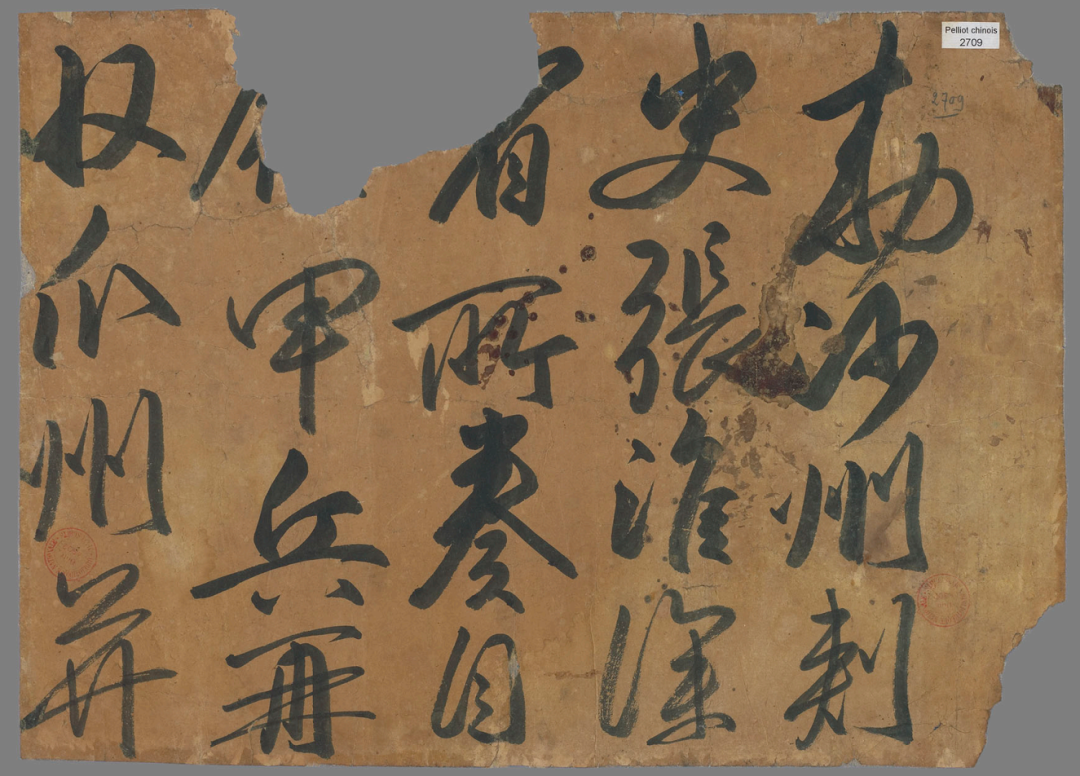 Pelliot chinois
2709
2709
勅沙州刺
史張淮深
省所奏自
甲兵再
収瓜州并